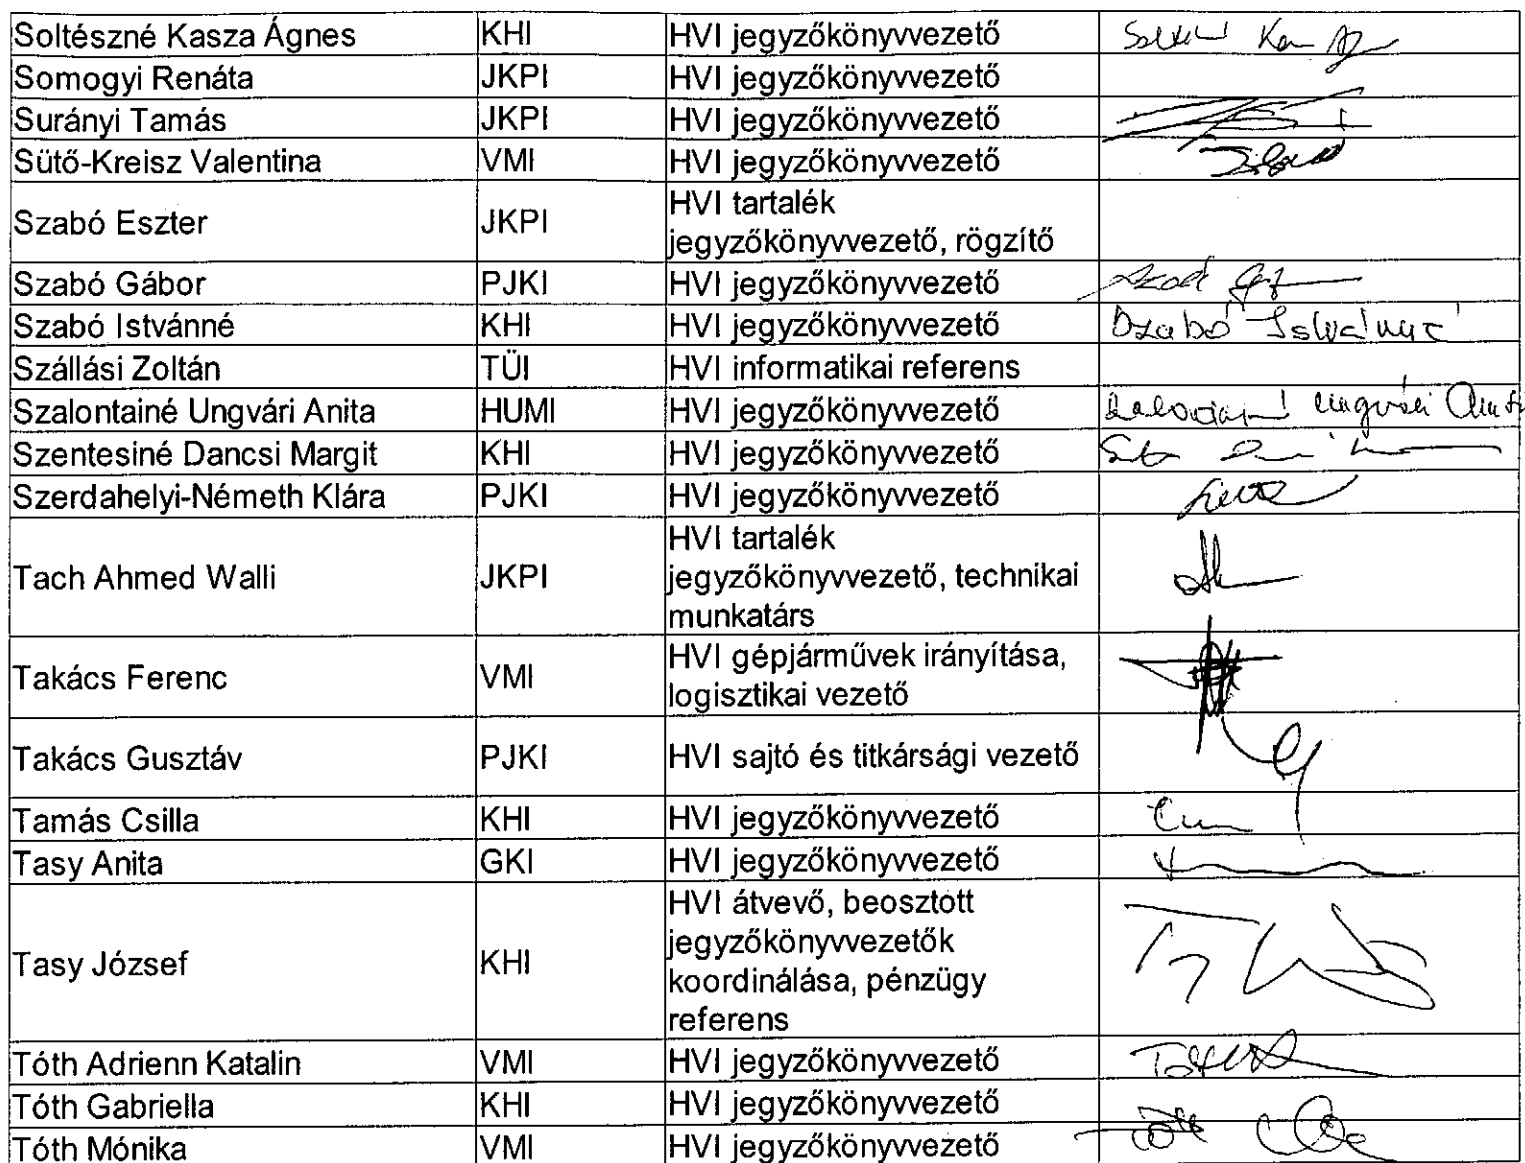 Soltészné Kasza Ágnes KHI HVI jegyzőkönyvvezető
Somogyi Renáta JKPI HVI jegyzőkönyvvezető
Surányi Tamás JKPI HVI jegyzőkönyvvezető
Sütő-Kreisz Valentina VMI HVI jegyzőkönyvvezető
Szabó Eszter JKPI HVI tartalék
jegyzőkönyvvezető, rögzítő
Szabó Gábor PJKI HVI jegyzőkönyvvezető
Szabó Istvánné KHI HVI jegyzőkönyvvezető Szabó Istvánné
Szállási Zoltán TÜI HVI informatikai referens
Szalontainé Ungvári Anita HUMI HVI jegyzőkönyvvezető
Szentesiné Dancsi Margit KHI HVI jegyzőkönyvvezető
Szerdahelyi-Németh Klára PJKI HVI jegyzőkönyvvezető
Tach Ahmed Walli JKPI HVI tartalék
jegyzőkönyvvezető, technikai
munkatárs
Takács Ferenc VMI HVI gépjárművek irányítása,
logisztikai vezető
Takács Gusztáv PJKI HVI sajtó és titkársági vezető
Tamás Csilla KHI HVI jegyzőkönyvvezető
Tasy Anita GKI HVI jegyzőkönyvvezető
Tasy József KHI HVI átvevő, beosztott
jegyzőkönyvvezetők
koordinálása, pénzügy
referens
Tóth Adrienn Katalin VMI HVI jegyzőkönyvvezető
Tóth Gabriella KHI HVI jegyzőkönyvvezető
Tóth Mónika VMI HVI jegyzőkönyvvezető